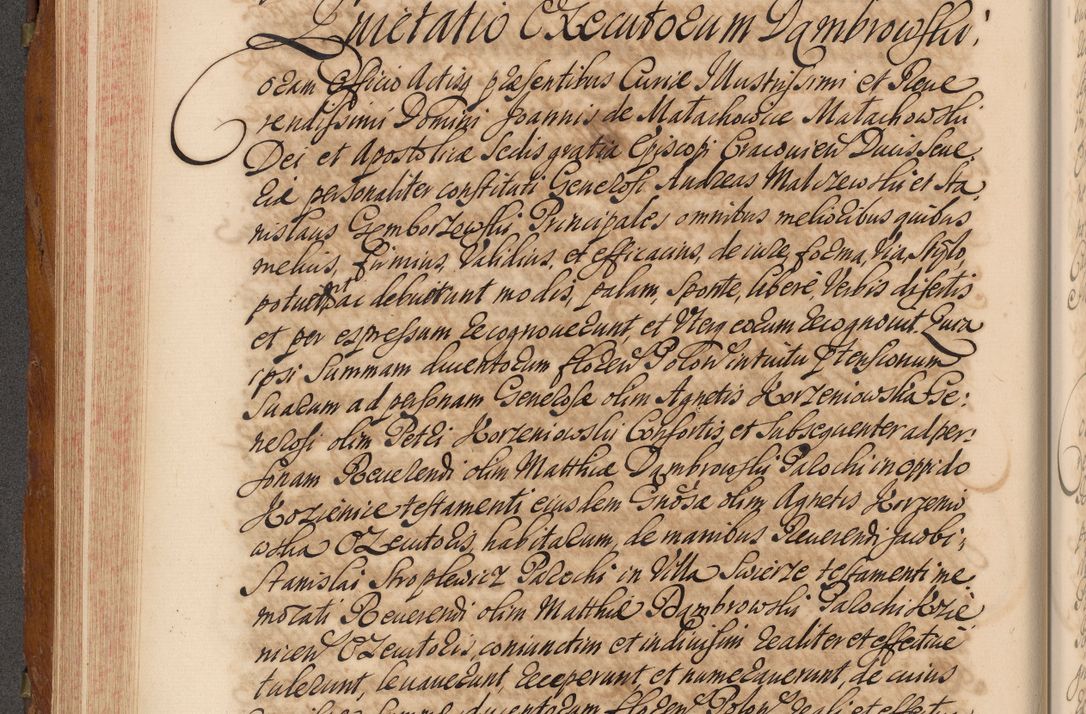 Quietatio Executorum Dambrowski
oram Officio Actisq praesentibus Curiae Illustrissimi et Reve
rendissimi Domini Joannis de Małachowice Małachowski
Dei et Apostolica Sedis gratia Episcopi Cracovien Ducis Seve
riae personaliter constituti Generosi Andreas Malczewski et Sta
nislaus Gemborzewski Principales omnibus melioribus quibus
melius, firmius, Validius, et efficacius, de iure, forma, Via, Stylo,
potuerunt ac debuerunt modis, palam, Sponte, libere, Verbis disertis
et per expressum recognoverunt et Uterq eorum recognovit. Quia
ipsi Summam ducentorum floren Polon intuitu ptensionum
Suarum ad personam Generosae olim Agnetis Korzeniowska Ge:
nerosi olim Petri Korzeniowski Consortis, et subsequenter ad per
sonam Reverendi olim Matthiae Dambrowski Parochi in oppido
Kozienice testamenti eiusdem Gnosae olim Agnetis Korzenio
wska Executoris, habitarum, de manibus Reverendi Jacobi,
Stanislai Stroplewicz Parochi in Villa Swierze, testamenti me
morati Reverendi olim Matthiae Dambrowski Parochi Kozie
nicen Executoris, coniunctim et indivisim realiter et effective
tulerunt, levaverunt, receperunt et numeraverunt, de cuius